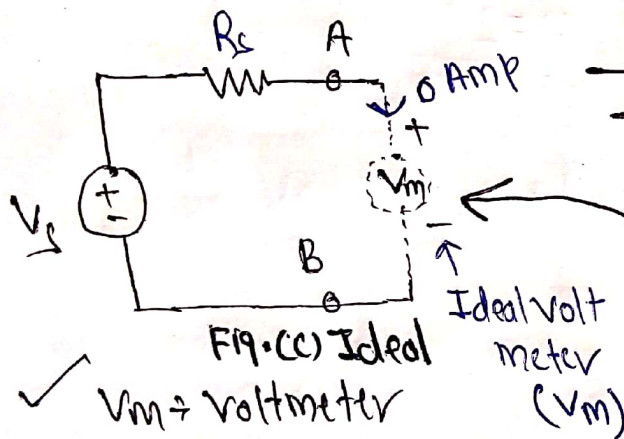 Rs A
0 Amp
+
+
-
Vm
Vs
-
B
Ideal Volt
meter
(Vm)
Fig.(C) Ideal
Vm ÷ Voltmeter